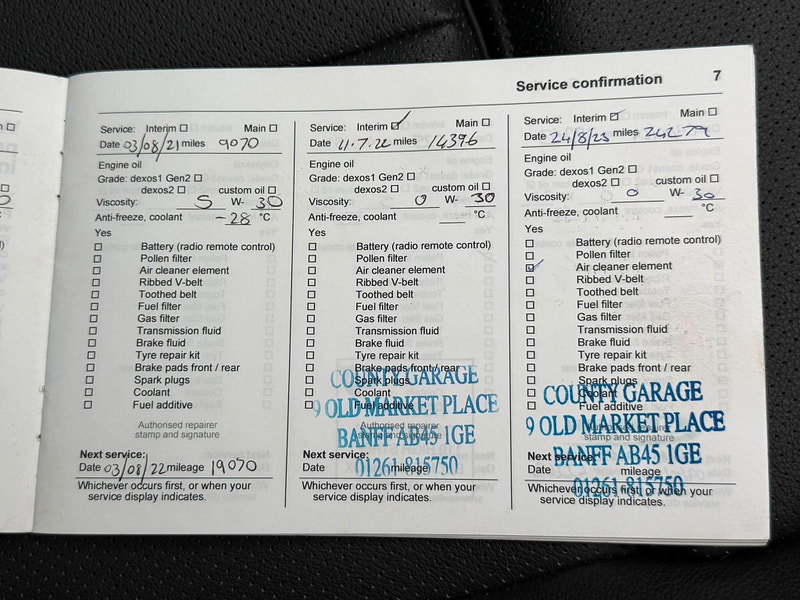 Service confirmation 7
Service: Interim Main
Date 03/08/21 miles 9070
Engine oil
Grade: dexos1 Gen2
dexos2 custom oil
Viscosity: 5 W- 30
Anti-freeze, coolant -28 °C
Yes
Battery (radio remote control)
Pollen filter
Air cleaner element
Ribbed V-belt
Toothed belt
Fuel filter
Gas filter
Transmission fluid
Brake fluid
Tyre repair kit
Brake pads front / rear
Spark plugs
Coolant
Fuel additive
Authorised repairer
stamp and signature
Next service:
Date 03/08/22 mileage 19070
Whichever occurs first, or when your
service display indicates.
Service: Interim ✓ Main
Date 11.7.22 miles 14396
Engine oil
Grade: dexos1 Gen2
dexos2 custom oil
Viscosity: 0 W- 30
Anti-freeze, coolant °C
Yes
Battery (radio remote control)
Pollen filter
Air cleaner element
Ribbed V-belt
Toothed belt
Fuel filter
Gas filter
Transmission fluid
Brake fluid
Tyre repair kit
Brake pads front / rear
Spark plugs
Coolant
Fuel additive
Authorised repairer
stamp and signature
COUNTY GARAGE
9 OLD MARKET PLACE
BANFF AB45 1GE
01261 815750
Next service:
Date mileage
Whichever occurs first, or when your
service display indicates.
Service: Interim ✓ Main
Date 24/8/23 miles 24279
Engine oil
Grade: dexos1 Gen2
dexos2 custom oil
Viscosity: 0 W- 30
Anti-freeze, coolant °C
Yes
Battery (radio remote control)
Pollen filter
✓ Air cleaner element
Ribbed V-belt
Toothed belt
Fuel filter
Gas filter
Transmission fluid
Brake fluid
Tyre repair kit
Brake pads front / rear
Spark plugs
Coolant
Fuel additive
Authorised repairer
stamp and signature
COUNTY GARAGE
9 OLD MARKET PLACE
BANFF AB45 1GE
01261 815750
Next service:
Date mileage
Whichever occurs first, or when your
service display indicates.